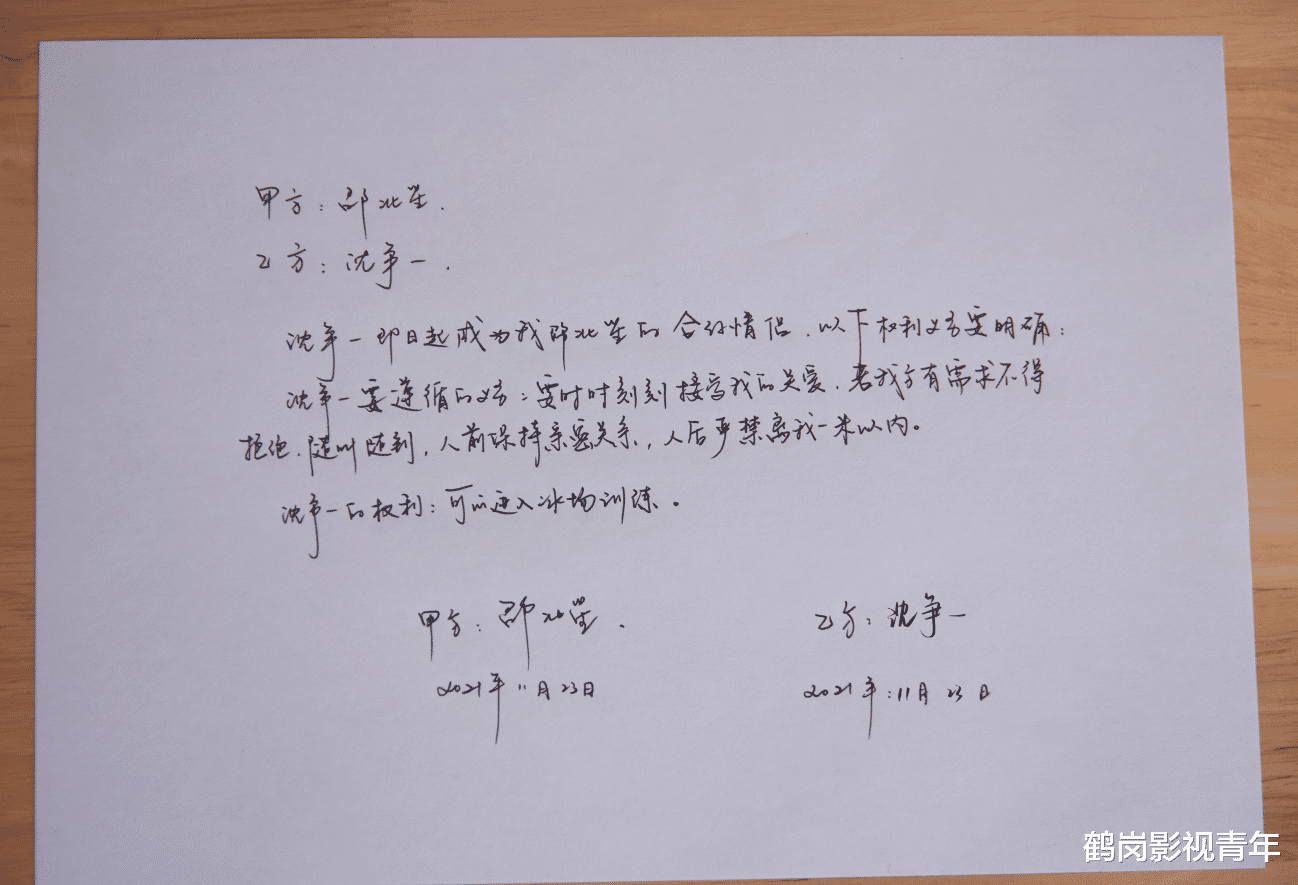 甲方：邵北笙.
乙方：沈争一.
沈争一即日起成为我邵北笙的合约情侣.以下权利义务要明确：
沈争一要遵循的义务：要时时刻刻接受我的关爱.若我方有需求不得
拒绝.随叫随到，人前保持亲密关系，人后严禁离我一米以内。
沈争一的权利：可以进入冰场训练。
甲方：邵北笙.
乙方：沈争一
2021年11月23日
2021年:11月23日
鹤岗影视青年